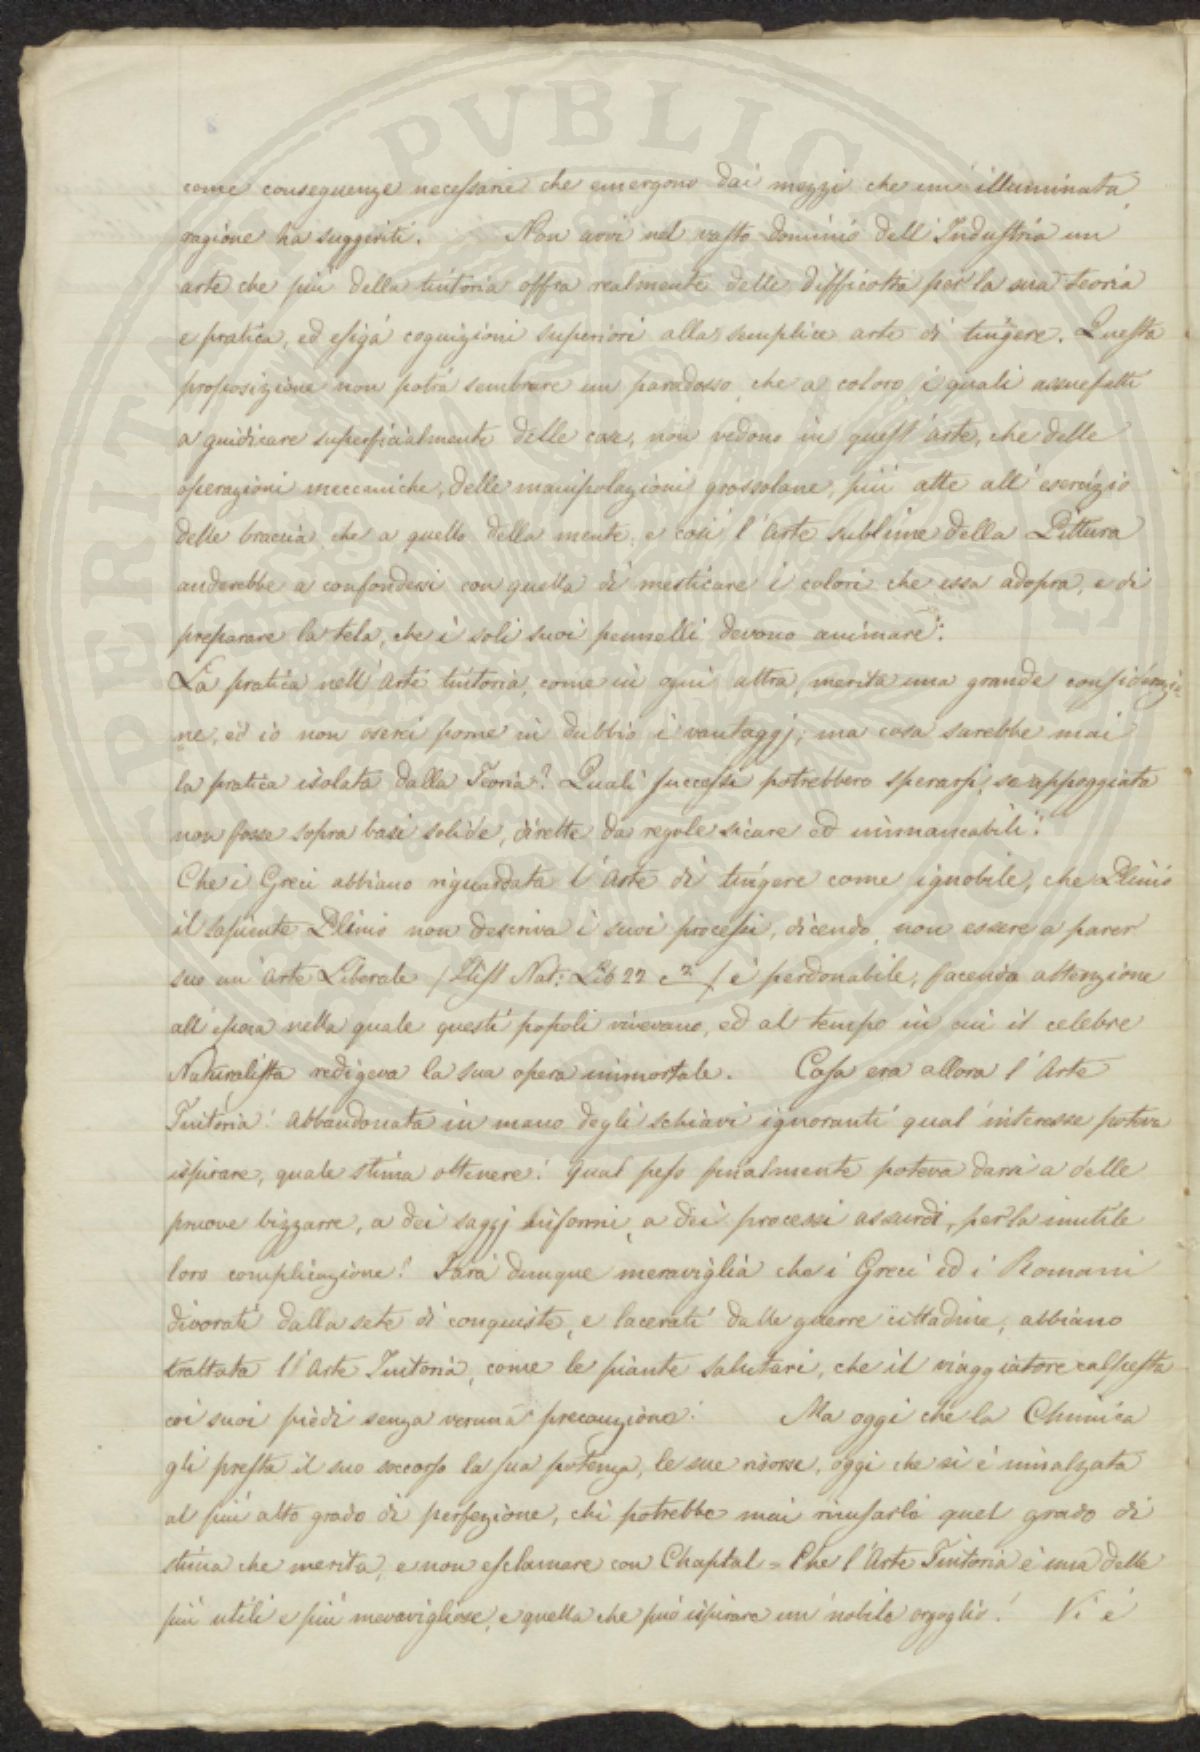 come conseguenze necessarie che emergono dai mezzi che un' illuminata
ragione ha suggeriti. Non avvi nel vasto dominio dell'Industria un
arte che più della tintoria offra realmente delle difficoltà per la sua teoria
e pratica, ed esiga cognizioni superiori alla semplice arte di tingere. Questa
proposizione non potrà sembrare un paradosso, che a coloro, i quali assuefatti
a giudicare superficialmente delle cose, non vedono in quest'arte, che delle
operazioni meccaniche, delle manipolazioni grossolane, più atte all'esercizio
delle braccia, che a quello della mente; e così l'Arte sublime della Pittura
anderebbe a confondersi con quella di mesticare i colori che essa adopra, e di
preparare la tela, che i soli suoi pennelli devono animare.
La pratica nell'Arte tintoria, come in ogni altra, merita una grande considerazio-
ne, ed io non oserei porne in dubbio i vantaggj; ma cosa sarebbe mai
la pratica isolata dalla Teoria? Quali successi potrebbero sperarsi, se appoggiata
non fosse sopra basi solide, dirette da regole sicure ed immancabili?
Che i Greci abbiano riguardata l'Arte di tingere come ignobile, che Plinio
il sapiente Plinio non descriva i suoi processi, dicendo, non essere a parer
suo un'Arte Liberale (Hist Nat: Lib 22 c 2) è perdonabile, facendo attenzione
all'epoca nella quale questi popoli vivevano, ed al tempo in cui il celebre
Naturalista redigeva la sua opera immortale. Cosa era allora l'Arte
Tintoria! abbandonata in mano degli schiavi ignoranti qual'interesse poteva
ispirare, quale stima ottenere! Qual peso finalmente poteva darsi a delle
pruove bizzarre, a dei saggj informi, a dei processi assurdi, per la inutile
loro complicazione! Sarà dunque meraviglia che i Greci ed i Romani
divorati dalla sete di conquiste, e lacerati dalle guerre cittadine, abbiano
trattata l'Arte Tintoria, come le piante salutari, che il viaggiatore calpesta
coi suoi piedi senza veruna precauzione! Ma oggi che la Chimica
gli presta il suo soccorso la sua potenza, le sue risorse, oggi che si è innalzata
al più alto grado di perfezione, chi potrebbe mai ricusarli quel grado di
stima che merita, e non esclamare con Chaptal = Che l'Arte Tintoria è una delle
più utili e più meravigliose, e quella che può ispirare un nobile orgoglio! Vi è